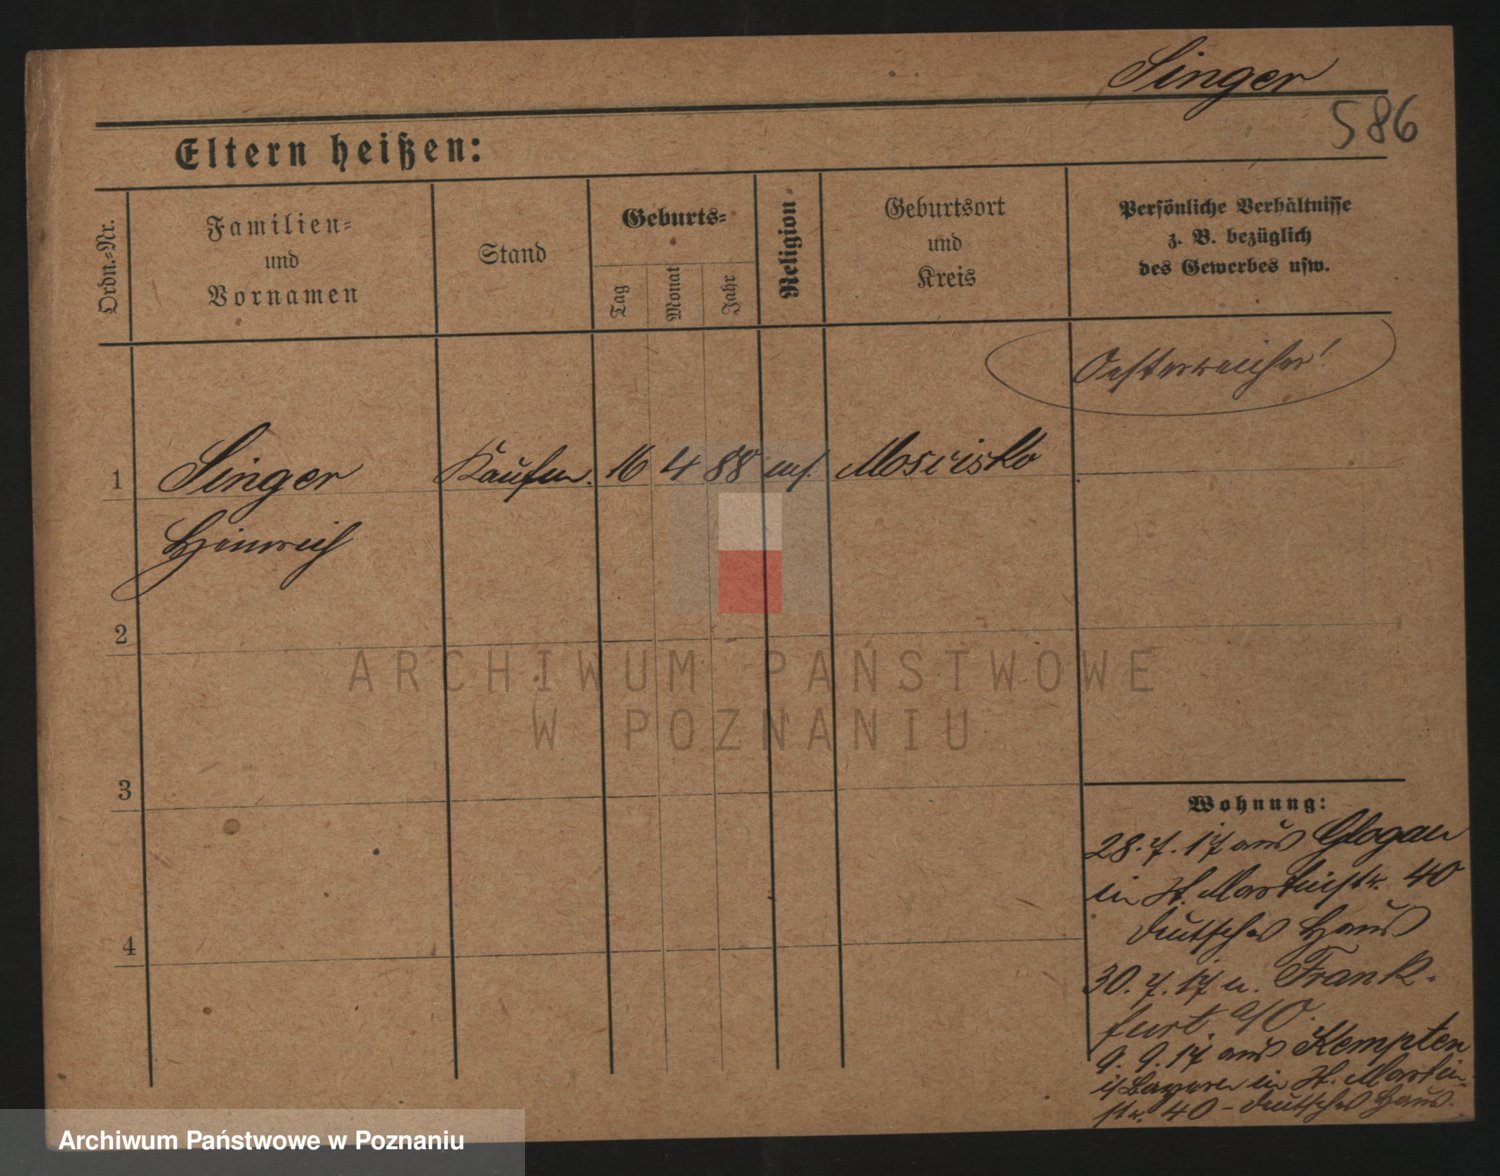 Singer
586
Eltern heißen:
Ordn.-Nr.
Familien-
und
Vornamen
Stand
Geburts-
Tag
Monat
Jahr
Religion
Geburtsort
und
Kreis
Persönliche Verhältnisse
z. B. bezüglich
des Gewerbes usw.
Oesterreicher!
1
Singer
Kaufm.
16
4
88
Mosciska
Heinrich
2
3
4
Wohnung:
28.7.17 aus Glogau
in St. Martinstr. 40
Deutsches Haus
30.7.17 n. Frank-
furt a/O.
9.9.17 aus Kempten
i/Bayern in St. Martin-
str. 40 - Deutsches Haus.
ARCHIWUM PAŃSTWOWE
W POZNANIU
Archiwum Państwowe w Poznaniu